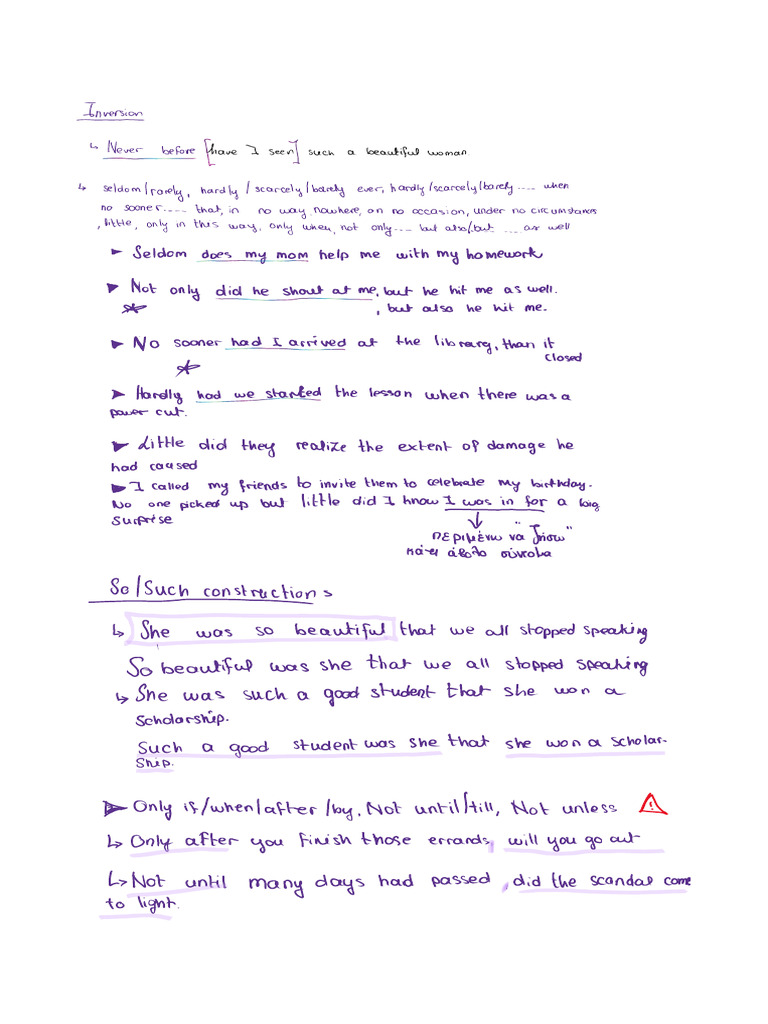 Inversion
↳ Never before [have I seen] such a beautiful woman
↳ seldom/rarely, hardly/scarcely/barely ever, hardly/scarcely/barely .... when
no sooner..... that, in no way, nowhere, on no occasion, under no circumstances
, little, only in this way, only when, not only.... but also/but ....as well
➤ Seldom does my mom help me with my homework
➤ Not only did he shout at me, but he hit me as well.
* , but also he hit me.
➤ No sooner had I arrived at the library, than it
closed
*
➤ Hardly had we started the lesson when there was a
power cut.
➤ Little did they realize the extent of damage he
had caused
➤ I called my friends to invite them to celebrate my birthday.
No one picked up but little did I know I was in for a big
surprise
περιμένω να "ζήσω"
κάτι άβολο σύντομα
So/Such constructions
↳ She was so beautiful that we all stopped speaking
So beautiful was she that we all stopped speaking
↳ She was such a good student that she won a
scholarship.
Such a good student was she that she won a scholar-
ship.
➤ Only if/when/after/by, Not until/till, Not unless ⚠
↳ Only after you finish those errands, will you go out
↳ Not until many days had passed, did the scandal come
to light.